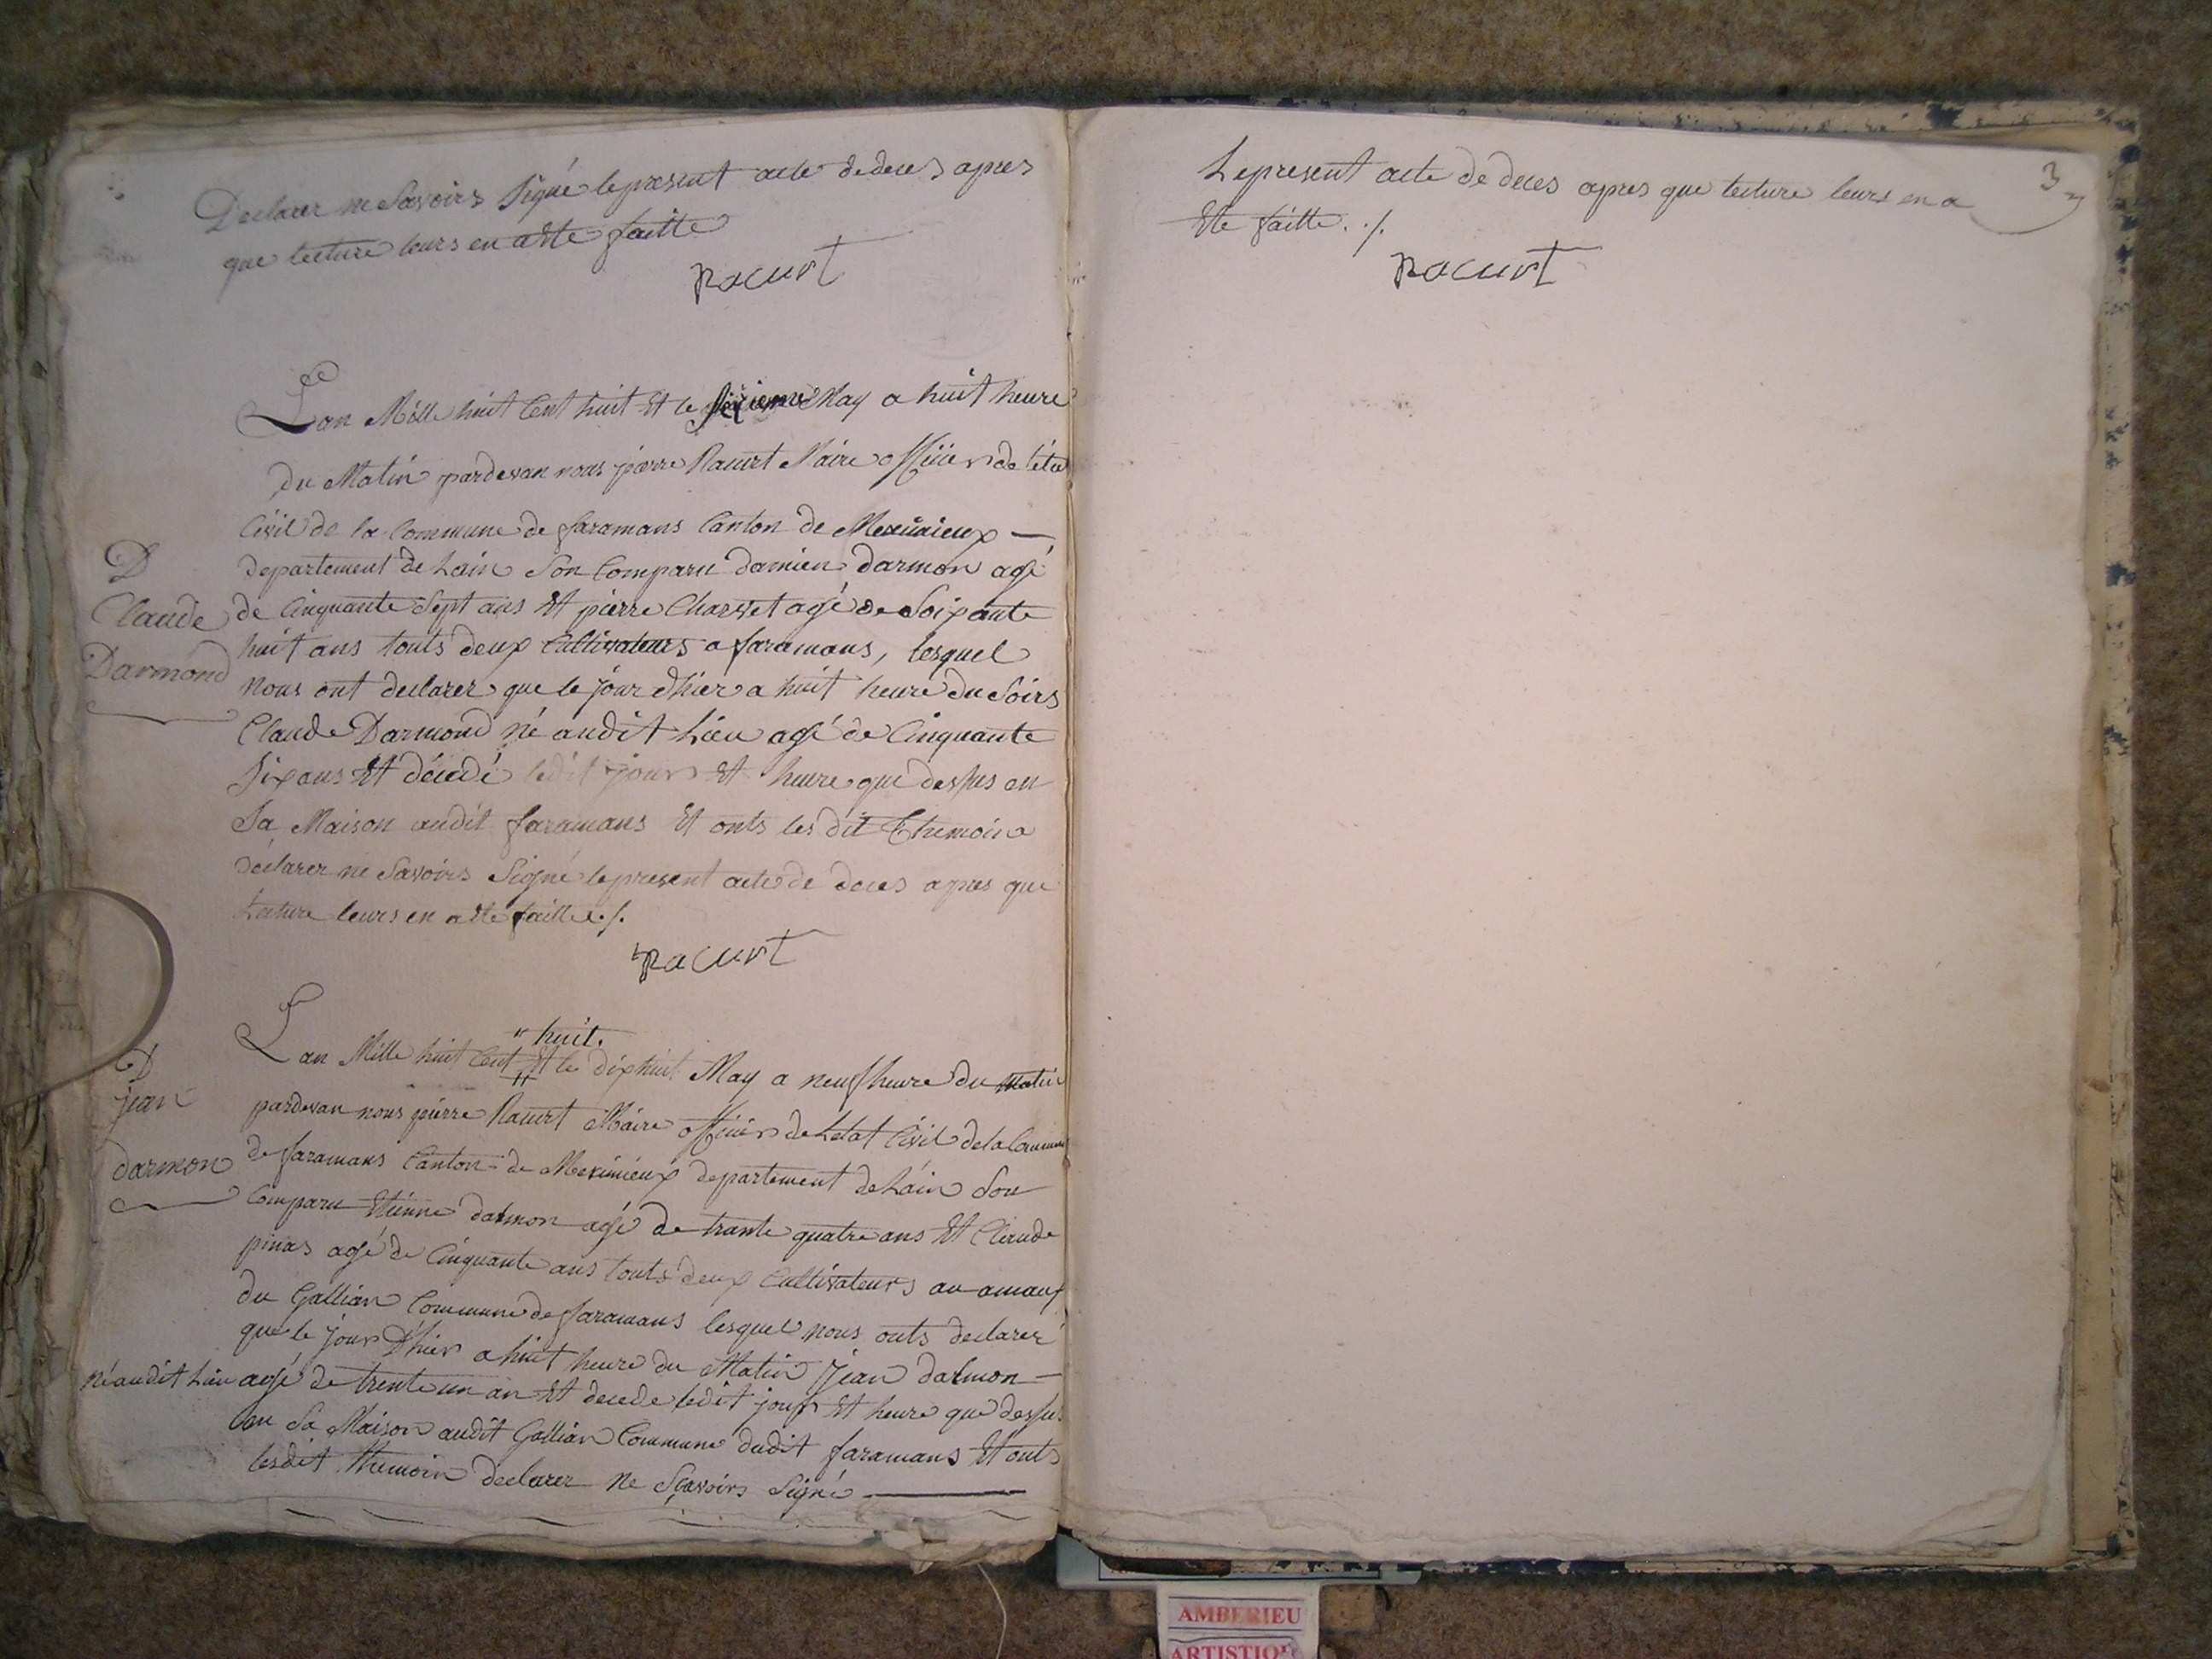 Declarer ne Savoirs Signé le present acte de deces apres
que lecture leurs en a Ete faitte
Racurt
Lan Mille huit Cent huit Et le May a huit heure
du Matin pardevan nous pierre Racurt Maire officier de létat
Civil de la Commune de faramans Canton de Meximieux —
departement de Lain Son Comparu damien darmon agé
de Cinquante Sept ans Et pierre Charvet agé de Soixante
huit ans touts deux Cultivateurs a faramans, lesquel
nous ont declarer que le jour dhier a huit heure du Soirs
Claude Darmond né audit Lieu agé de Cinquante
Six ans Et décédé ledit jour Et heure que dessus en
Sa Maison audit faramans Et onts les dit Themoin
déclarer ne Savoirs Signé le present acte de deces apres que
Lecture leurs en a Ete faitte ./.
Racurt
D
Claude
Darmond
Lan Mille huit Cent " huit. Et le dixhuit May a neuf heure du Matin
pardevan nous pierre Racurt Maire officier de Letat Civil de la Commune
de faramans Canton de Meximieux departement de Lain Son
Comparu Etienne darmon agé de trante quatre ans Et Claude
pinas agé de Cinquante ans touts deux Cultivateurs au
du Gallian Commune de faramans lesquel nous onts declarer
que le jour Dhier a huit heure du Matin Jean darmon —
né audit Lieu agé de trente un an Et decede ledit jour Et heure que dessus
en Sa Maison audit Gallian Commune dudit faramans Et onts
lesdit themoin declarer ne Sçavoirs Signé —
D
jean
darmon
3
Le present acte de deces apres que lecture leurs en a
Ete faitte. ./.
Racurt
AMBERIEU
ARTISTIQUE